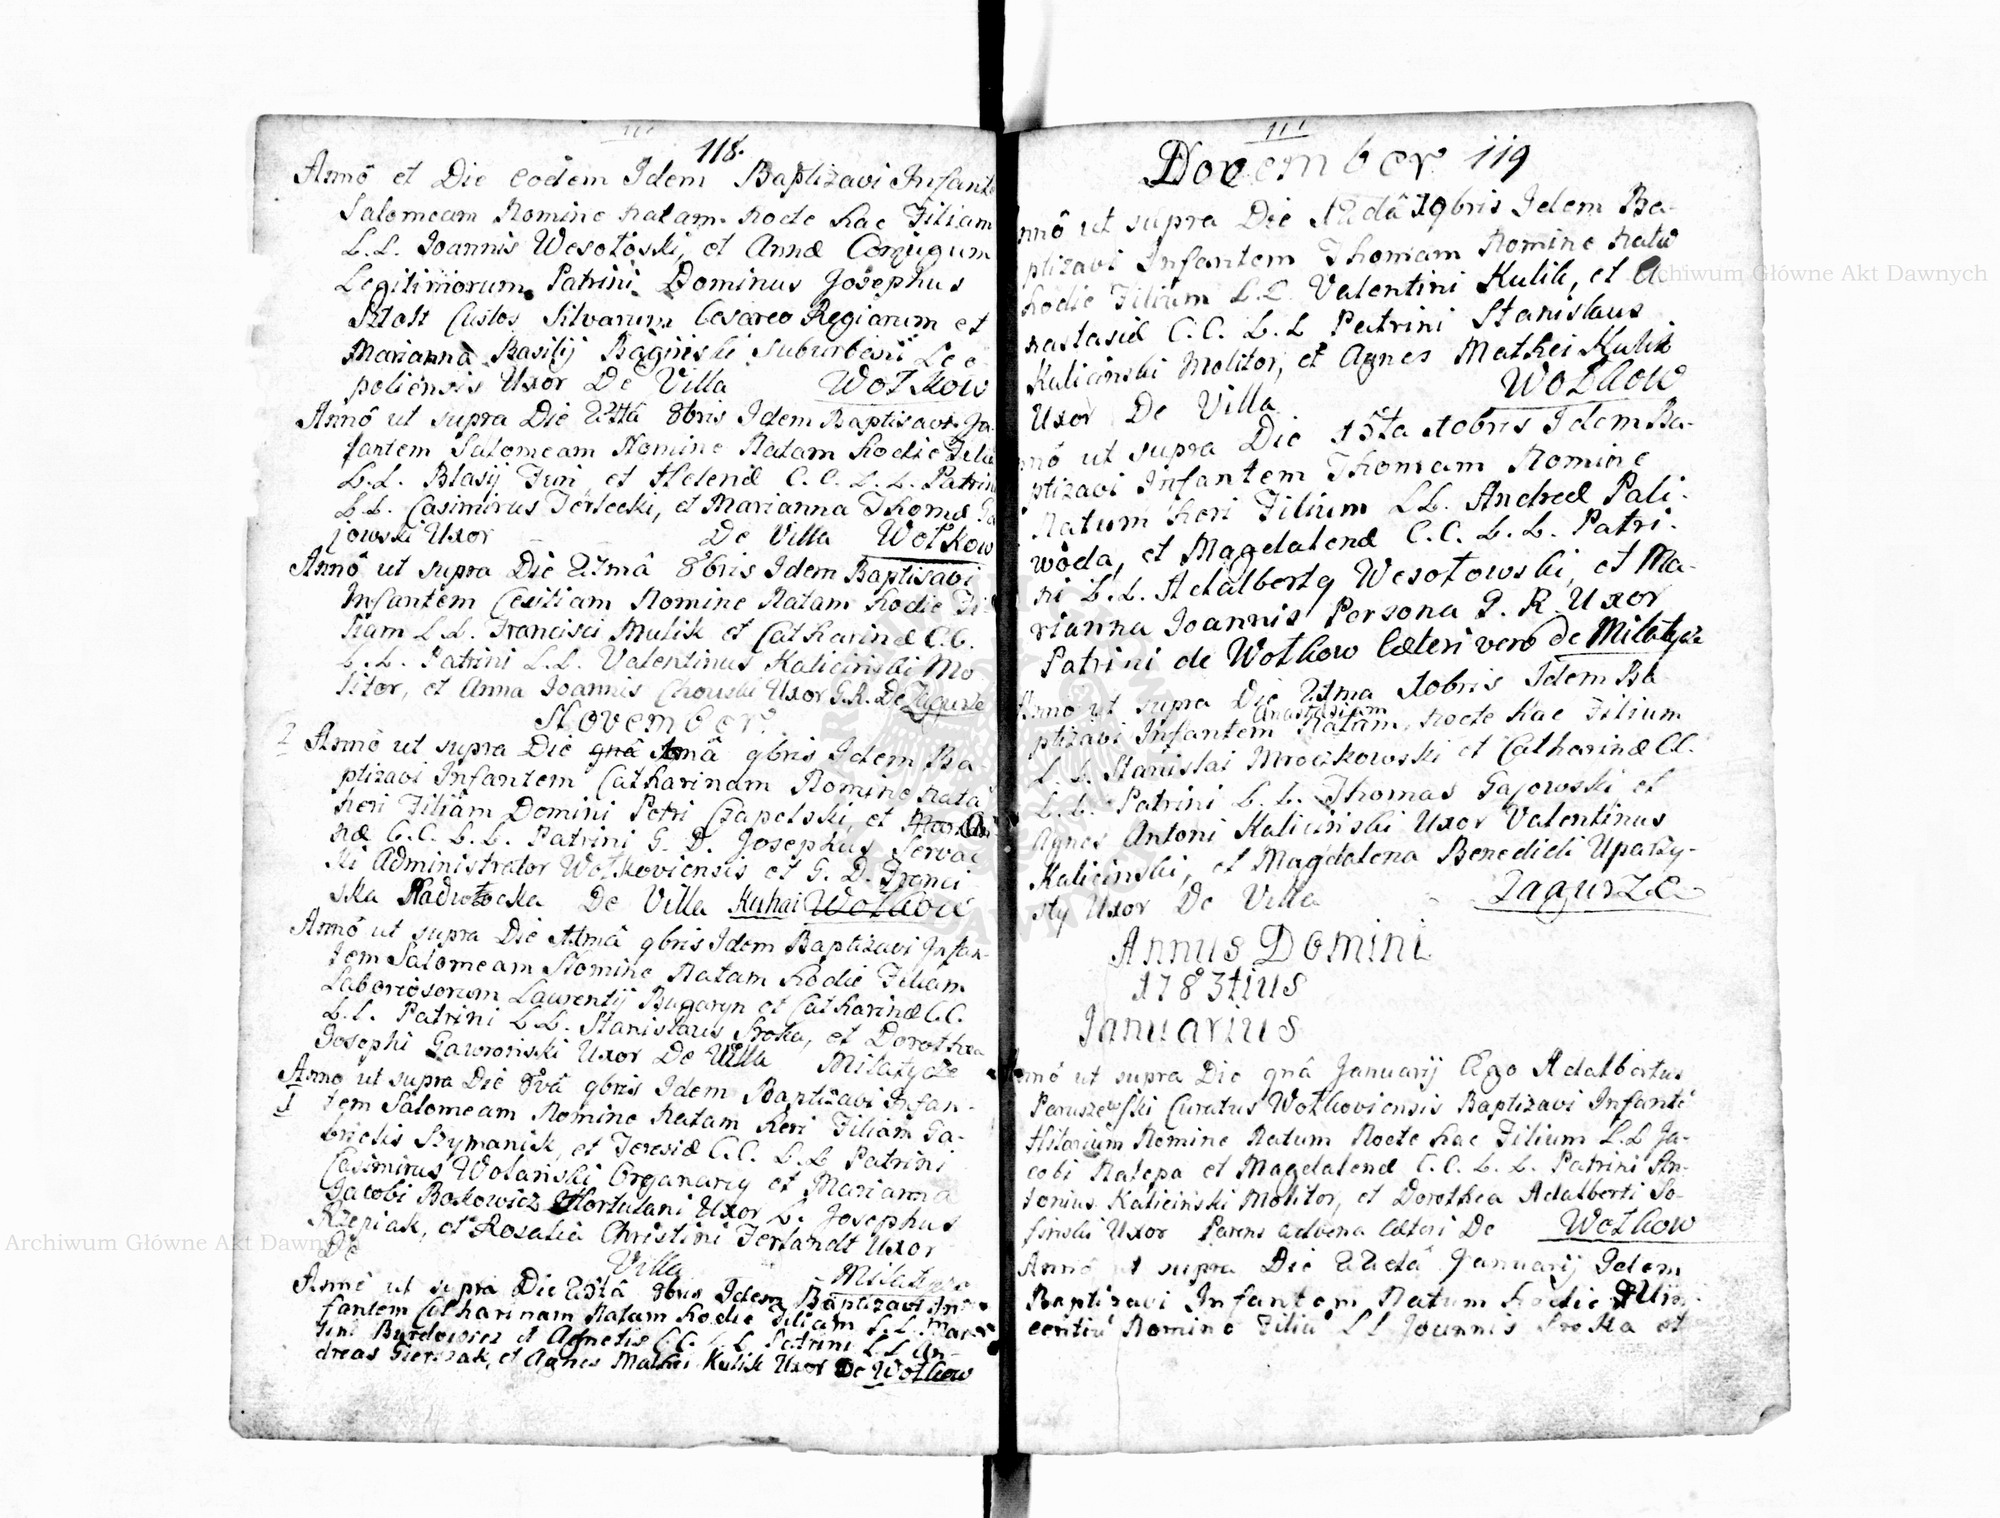 118.
Annô et Die eodem Idem Baptizavi Infant
Salomeam Nomine natam nocte hac Filiam
L.L. Joannis Wesołoski, et Annæ Conjugum
Legitimorum. Patrini Dominus Josephus
Custos Silvarum Cesareo Regiarum et
Marianna Basilij Baginski Suburbani Leo-
poliensis Uxor De Villa Wołkow
Annô ut supra Die 8bris Idem Baptisavi In
fantem Salomeam Nomine Natam hodie Filia
L.L. Blasij Furi, et Helenæ C.C. L.L. Patrin
L.L. Casimirus Terlecki, et Marianna Thomæ Ga
jowski Uxor De Villa Wołkow
Annô ut supra Die 8bris Idem Baptisavi
Infantem Ceciliam Nomine Natam hodie Fi
liam L.L. Francisci Mulik et Catharinæ C.C.
L.L. Patrini L.L. Valentinus Kaliciński Mo
litor, et Anna Joannis Uxor G.R. De Zagurze
November
2 Annô ut supra Die 9bris Idem Ba
ptizavi Infantem Catharinam Nomine nata
heri Filiam Domini Petri Czapelski, et An
næ C.C. L.L. Patrini G. D. Josephus Servac
ki Administrator Wołkoviensis et G. D. Franci
ska De Villa Kuhai Wołkow
Annô ut supra Die 9bris Idem Baptizavi Infan-
tem Salomeam Nomine Natam hodie Filiam
Laboriosorum Laurentij Bugaryn et Catharinæ C.C.
L.L. Patrini L.L. Stanislaus Sroka, et Dorothea
Josephi Gawroński Uxor De Villa Milatycze
Anno ut supra Die 8vâ 9bris Idem Baptizavi Infan-
1 tem Salomeam Nomine Natam heri Filiam Ga-
brielis Szymaniſk, et Teresiæ C.C. L.L Patrini
Casimirus Wolański Organariy et Marianna
Jacobi Bokowicz Hortulani Uxor L. Josephus
Rzepiak, et Rosalia Christini Ferlandt Uxor
De Villa Milatycze
Annô ut supra Die 8bris Idem Baptizavi In
fantem Catharinam Natam hodie Filiam L.L. Mar
tini Burdowicz et Agnetis C.C. L.L. Patrini L.L An-
dreas et Agnes Mathei Kulik Uxor De Wołkow
111
November 119
nnô ut supra Die 12dâ 10bris Idem Ba-
ptizavi Infantem Thomam Nomine natu
hodie Filium L.L. Valentini Kulik, et A
nastasiæ C.C. L.L Patrini Stanislaus
Kaliciński Molitor, et Agnes Mathei Kulik
Uxor De Villa Wołkow
nnô ut supra Die 15ta 10bris Idem Ba-
ptizavi Infantem Thomam Nomine
Natum heri Filium L.L. Andreæ Pali-
woda, et Magdalenæ C.C. L.L. Patri-
ni L.L. Adalbertg Wesołowski, et Ma-
rianna Joannis Persona G. R. Uxor
Patrini de Wołkow Cæteri vero de Milatycze
Anno ut supra Die 21ma 10bris Idem Ba
Anastasiam
ptizavi Infantem Natam, nocte hac Filium
L.L. Stanislai Mroczkowski et Catharinæ CC.
L.L. Patrini L.L. Thomas Gajowski et
Agnes Antoni Kaliciński Uxor Valentinus
Kaliciński, et Magdalena Benedicti Uparzy-
sty Uxor De Villa Zagurze
Annus Domini
1783tius
Januarius
Annô ut supra Die 9nâ Januarij Ego Adalbertus
Paruszewski Curatus Wołkoviensis Baptizavi Infantê
Hilarium Nomine Natum Nocte hac Filium L.L Ja-
cobi Nalepa et Magdalenæ C.C. L.L. Patrini An-
tonius Kaliciński Molitor, et Dorothea Adalberti So-
sinski Uxor Parens Advena Cæteri De Wołkow
Annô ut supra Die 22dâ Januarij Idem
Baptizavi Infantem Natum hodie Vin-
centiu Nomine Filiu L L Joannis Sroka et
Archiwum Główne Akt Dawnych
Archiwum Główne Akt Dawnych